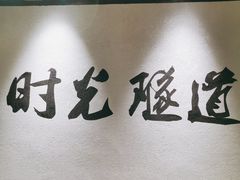 时光隧道